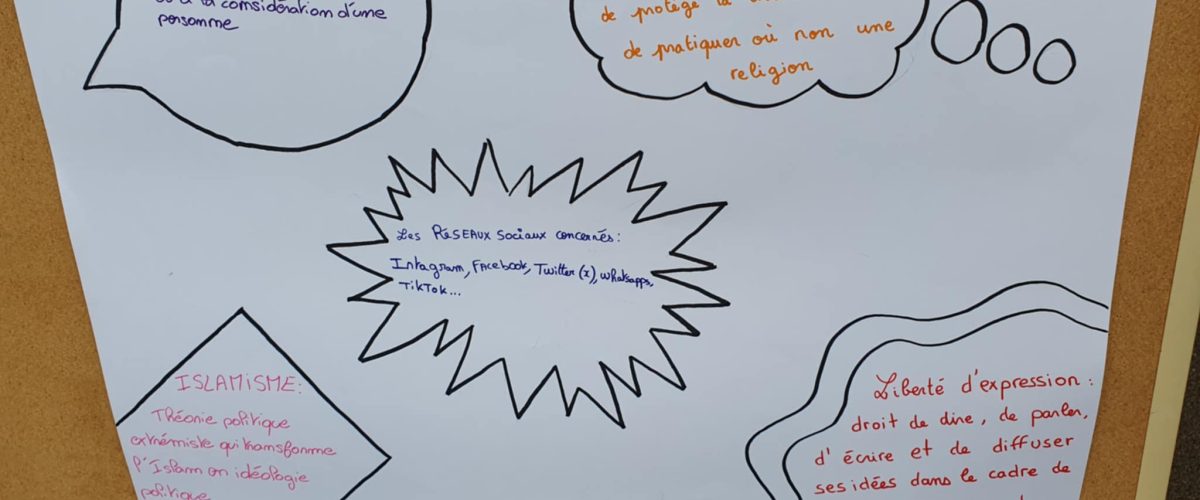 à la considération d'une
personne
de protégé la
de pratiquer où non une
religion
Les RéSEAUX Sociaux concernés :
Intagram, Facebook, Twitter (x), whatsapps,
TikTok...
ISLAMiSME :
Théorie politique
extrémiste qui transforme
l'Islam en idéologie
politique
Liberté d'expression :
droit de dire, de parler,
d'écrire et de diffuser
ses idées dans le cadre de